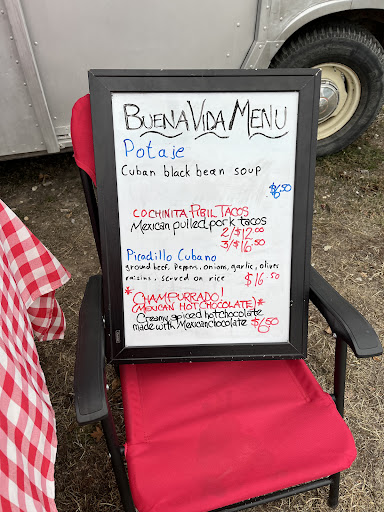 BUENA VIDA MENU
Potaje
Cuban black bean soup
$6.50
COCHINITA PIBIL TACOS
Mexican pulled pork tacos
2/$12.00
3/$16.50
Picadillo Cubano
ground beef, Peppers, onions, garlic, olives
raisins, served on rice $16.50
*CHAMPURRADO!
(MEXICAN HOT CHOCOLATE)*
Creamy spiced hot chocolate
made with Mexican clocolate $6.50